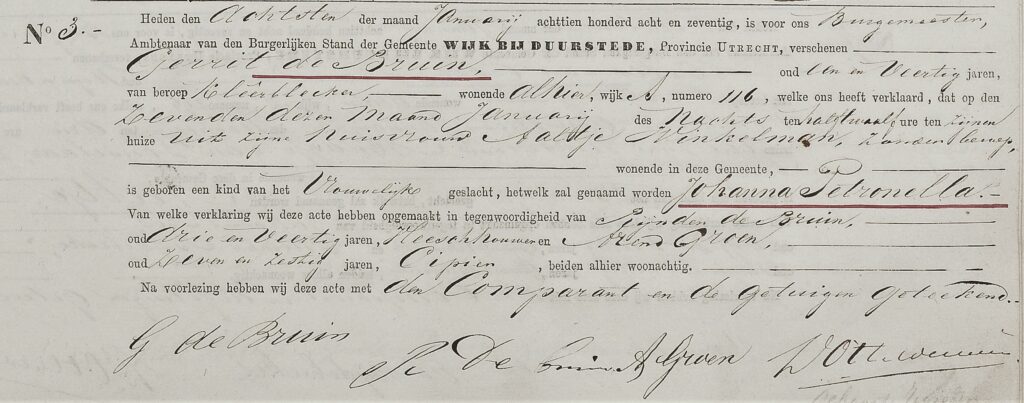 Nº 3.-
Heden den Achtsten der maand Januarij achttien honderd acht en zeventig, is voor ons Burgemeester,
Ambtenaar van den Burgerlijken Stand der Gemeente WIJK BIJ DUURSTEDE, Provincie UTRECHT, verschenen
Gerrit de Bruin, oud Een en Veertig jaren,
van beroep Kleêrblecker, wonende alhier, wijk A, numero 116, welke ons heeft verklaard, dat op den
Zevenden dezer maand Januarij des Nachts ten half twaalf ure ten zijnen
huize Uit zijne huisvrouw Aaltje Winkelman, zonder beroep,
wonende in deze Gemeente,
is geboren een kind van het Vrouwelijk geslacht, hetwelk zal genaamd worden Johanna Petronella.
Van welke verklaring wij deze acte hebben opgemaakt in tegenwoordigheid van de Bruin,
oud Drie en Veertig jaren, en Arend Groen,
oud Zeven en Zestig jaren, Cipier, beiden alhier woonachtig.
Na voorlezing hebben wij deze acte met den Comparant en de getuigen geteekend.-
G de Bruin
R De Bruin A Groen